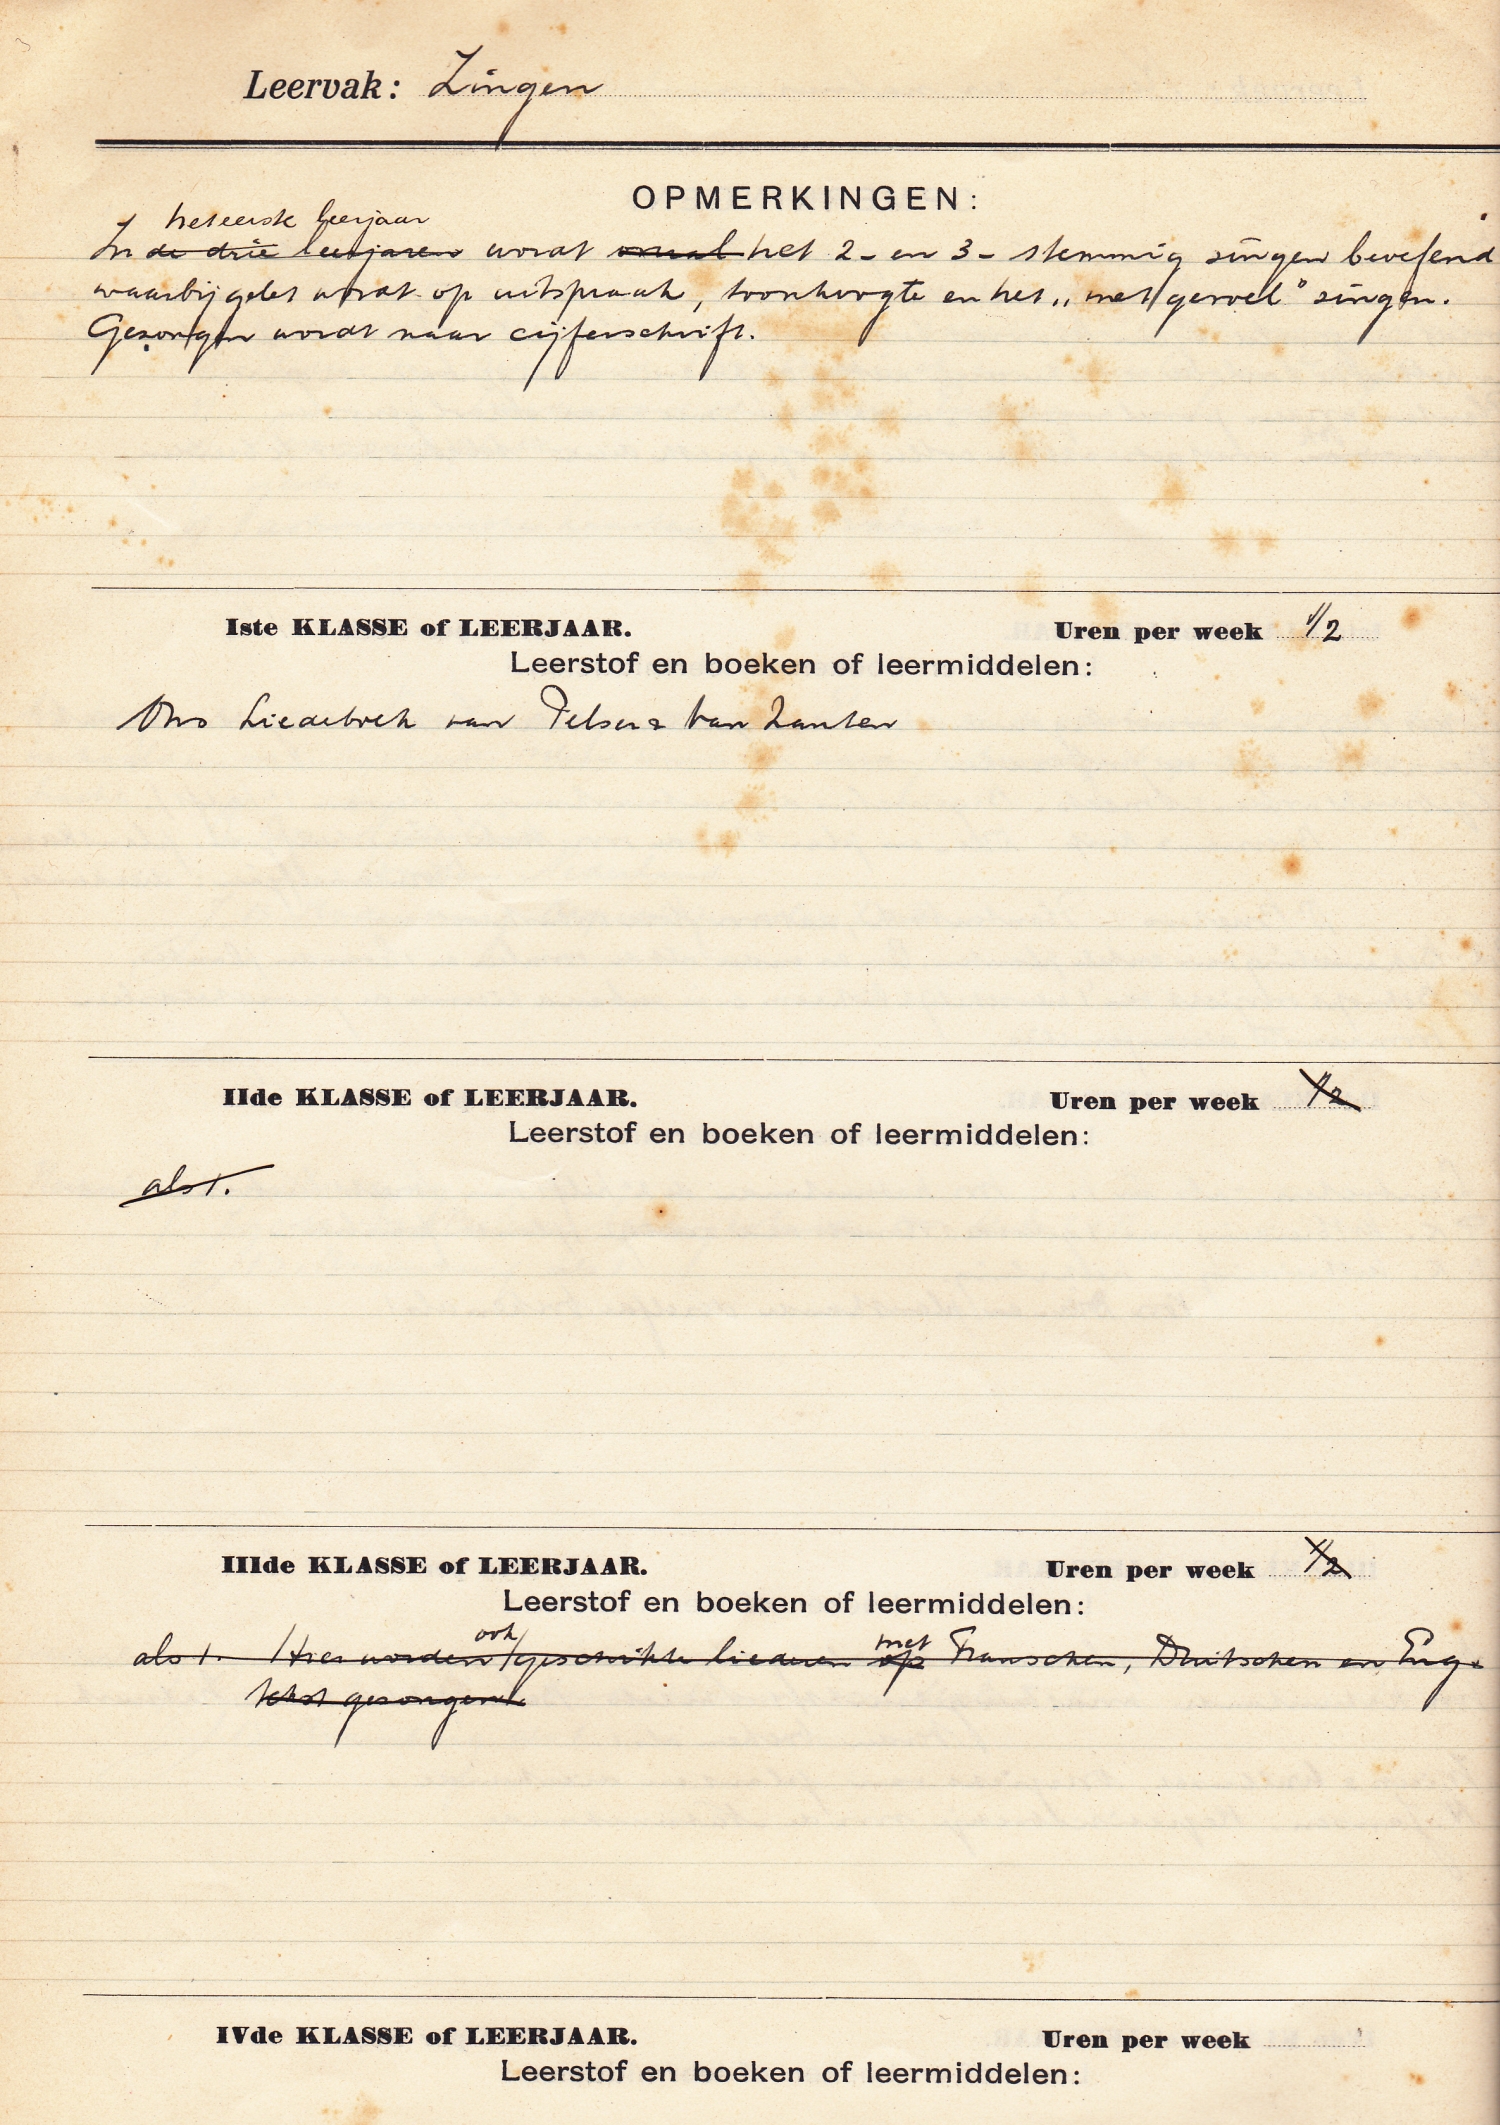 Leervak: Zingen
OPMERKINGEN:
het eerste leerjaar
In de drie leerjaren wordt vooral het 2- en 3- stemmig zingen beoefend
waarbij gelet wordt op uitspraak, toonhoogte en het „met gevoel" zingen.
Gezongen wordt naar cijferschrift.
Iste KLASSE of LEERJAAR. Uren per week 1/2
Leerstof en boeken of leermiddelen:
Ons Liederboek van Pelser & Van Zanten
IIde KLASSE of LEERJAAR. Uren per week 1/2
Leerstof en boeken of leermiddelen:
als 1.
IIIde KLASSE of LEERJAAR. Uren per week 1/2
Leerstof en boeken of leermiddelen:
ook met
als 1. Hier worden geschikte liederen op Franschen, Duitschen en Eng.
tekst gezongen.
IVde KLASSE of LEERJAAR. Uren per week
Leerstof en boeken of leermiddelen: